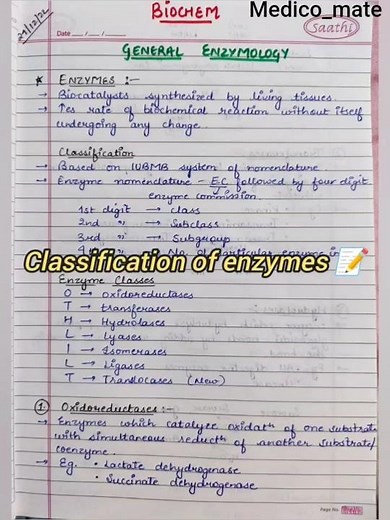 BIOCHEM
Medico_mate
27/12/22
Date __/__/__
Saathi
GENERAL ENZYMOLOGY
* ENZYMES :-
→ Biocatalysts synthesized by living tissues.
→ ↑es rate of biochemical reaction without itself
undergoing any change.
Classification
→ Based on IUBMB system of nomenclature
→ Enzyme nomenclature - EC followed by four digit.
enzyme commission.
1st digit → class
2nd " → Subclass
3rd " → Subgroup
particular enzyme in
Classification of enzymes📝
Enzyme Classes
O → Oxidoreductases
T → Transferases
H → Hydrolases
L → Lyases
I → Isomerases
L → Ligases
T → Translocases (New)
① Oxidoreductases :-
→ Enzymes which catalyze oxidatⁿ of one substrate
with simultaneous reductⁿ of another substrate/
coenzyme.
→ Eg. • Lactate dehydrogenase
• Succinate dehydrogenase
Page No.